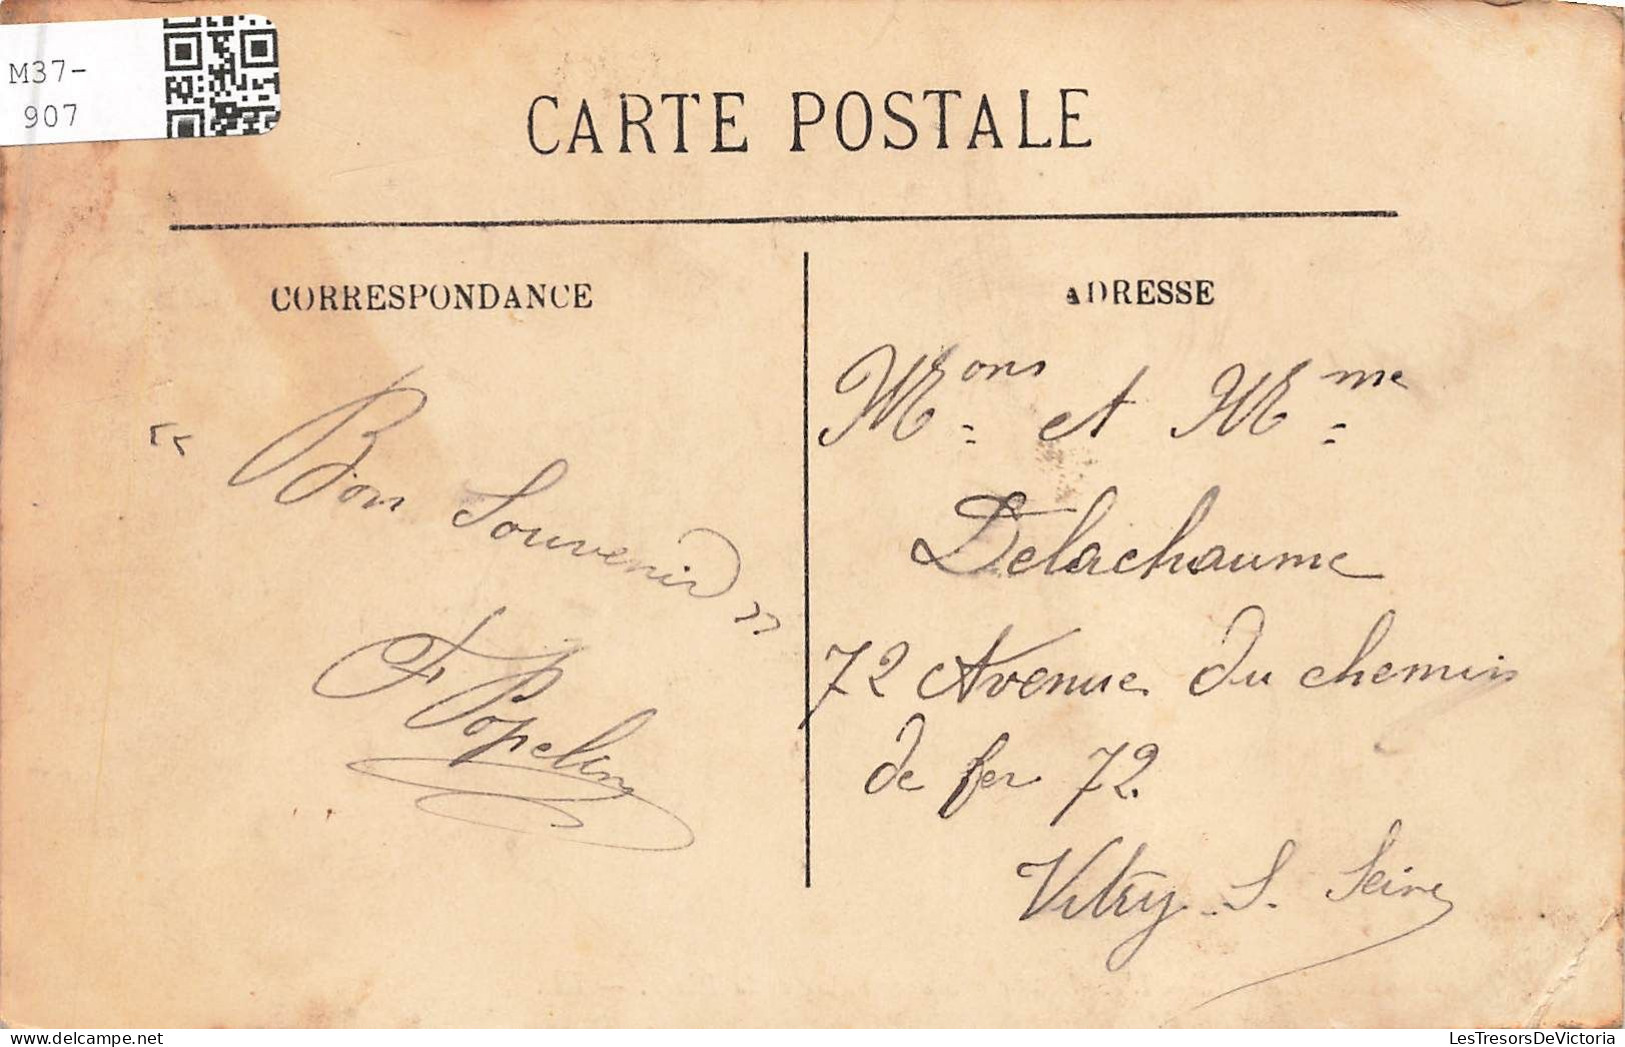 M37-
907
CARTE POSTALE
CORRESPONDANCE
« Bon Souvenir »
F Popelin
ADRESSE
Mons et Mme
Delachaume
72 Avenue du chemin
de fer 72.
Vitry S. Seine
LesTresorsDeVictoria